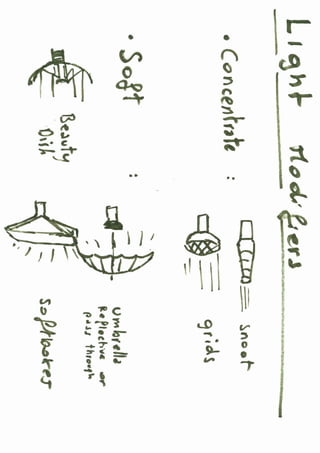 Light Modifiers
• Concentrate :
snoot
grids
• Soft :
Umbrella
Reflective or
pass through
Softboxes
Beauty
Dish